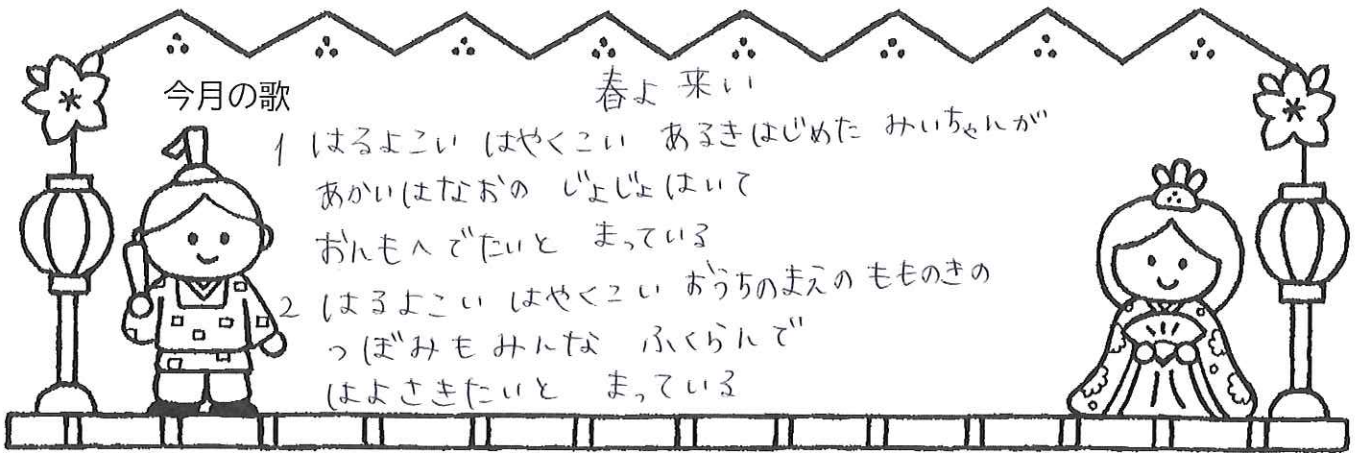 今月の歌
春よ来い
1 はるよこい はやくこい あるきはじめた みいちゃんが
あかいはなおの じょじょはいて
おんもへでたいと まっている
2 はるよこい はやくこい おうちのまえの もものきの
つぼみも みんな ふくらんで
はよさきたいと まっている